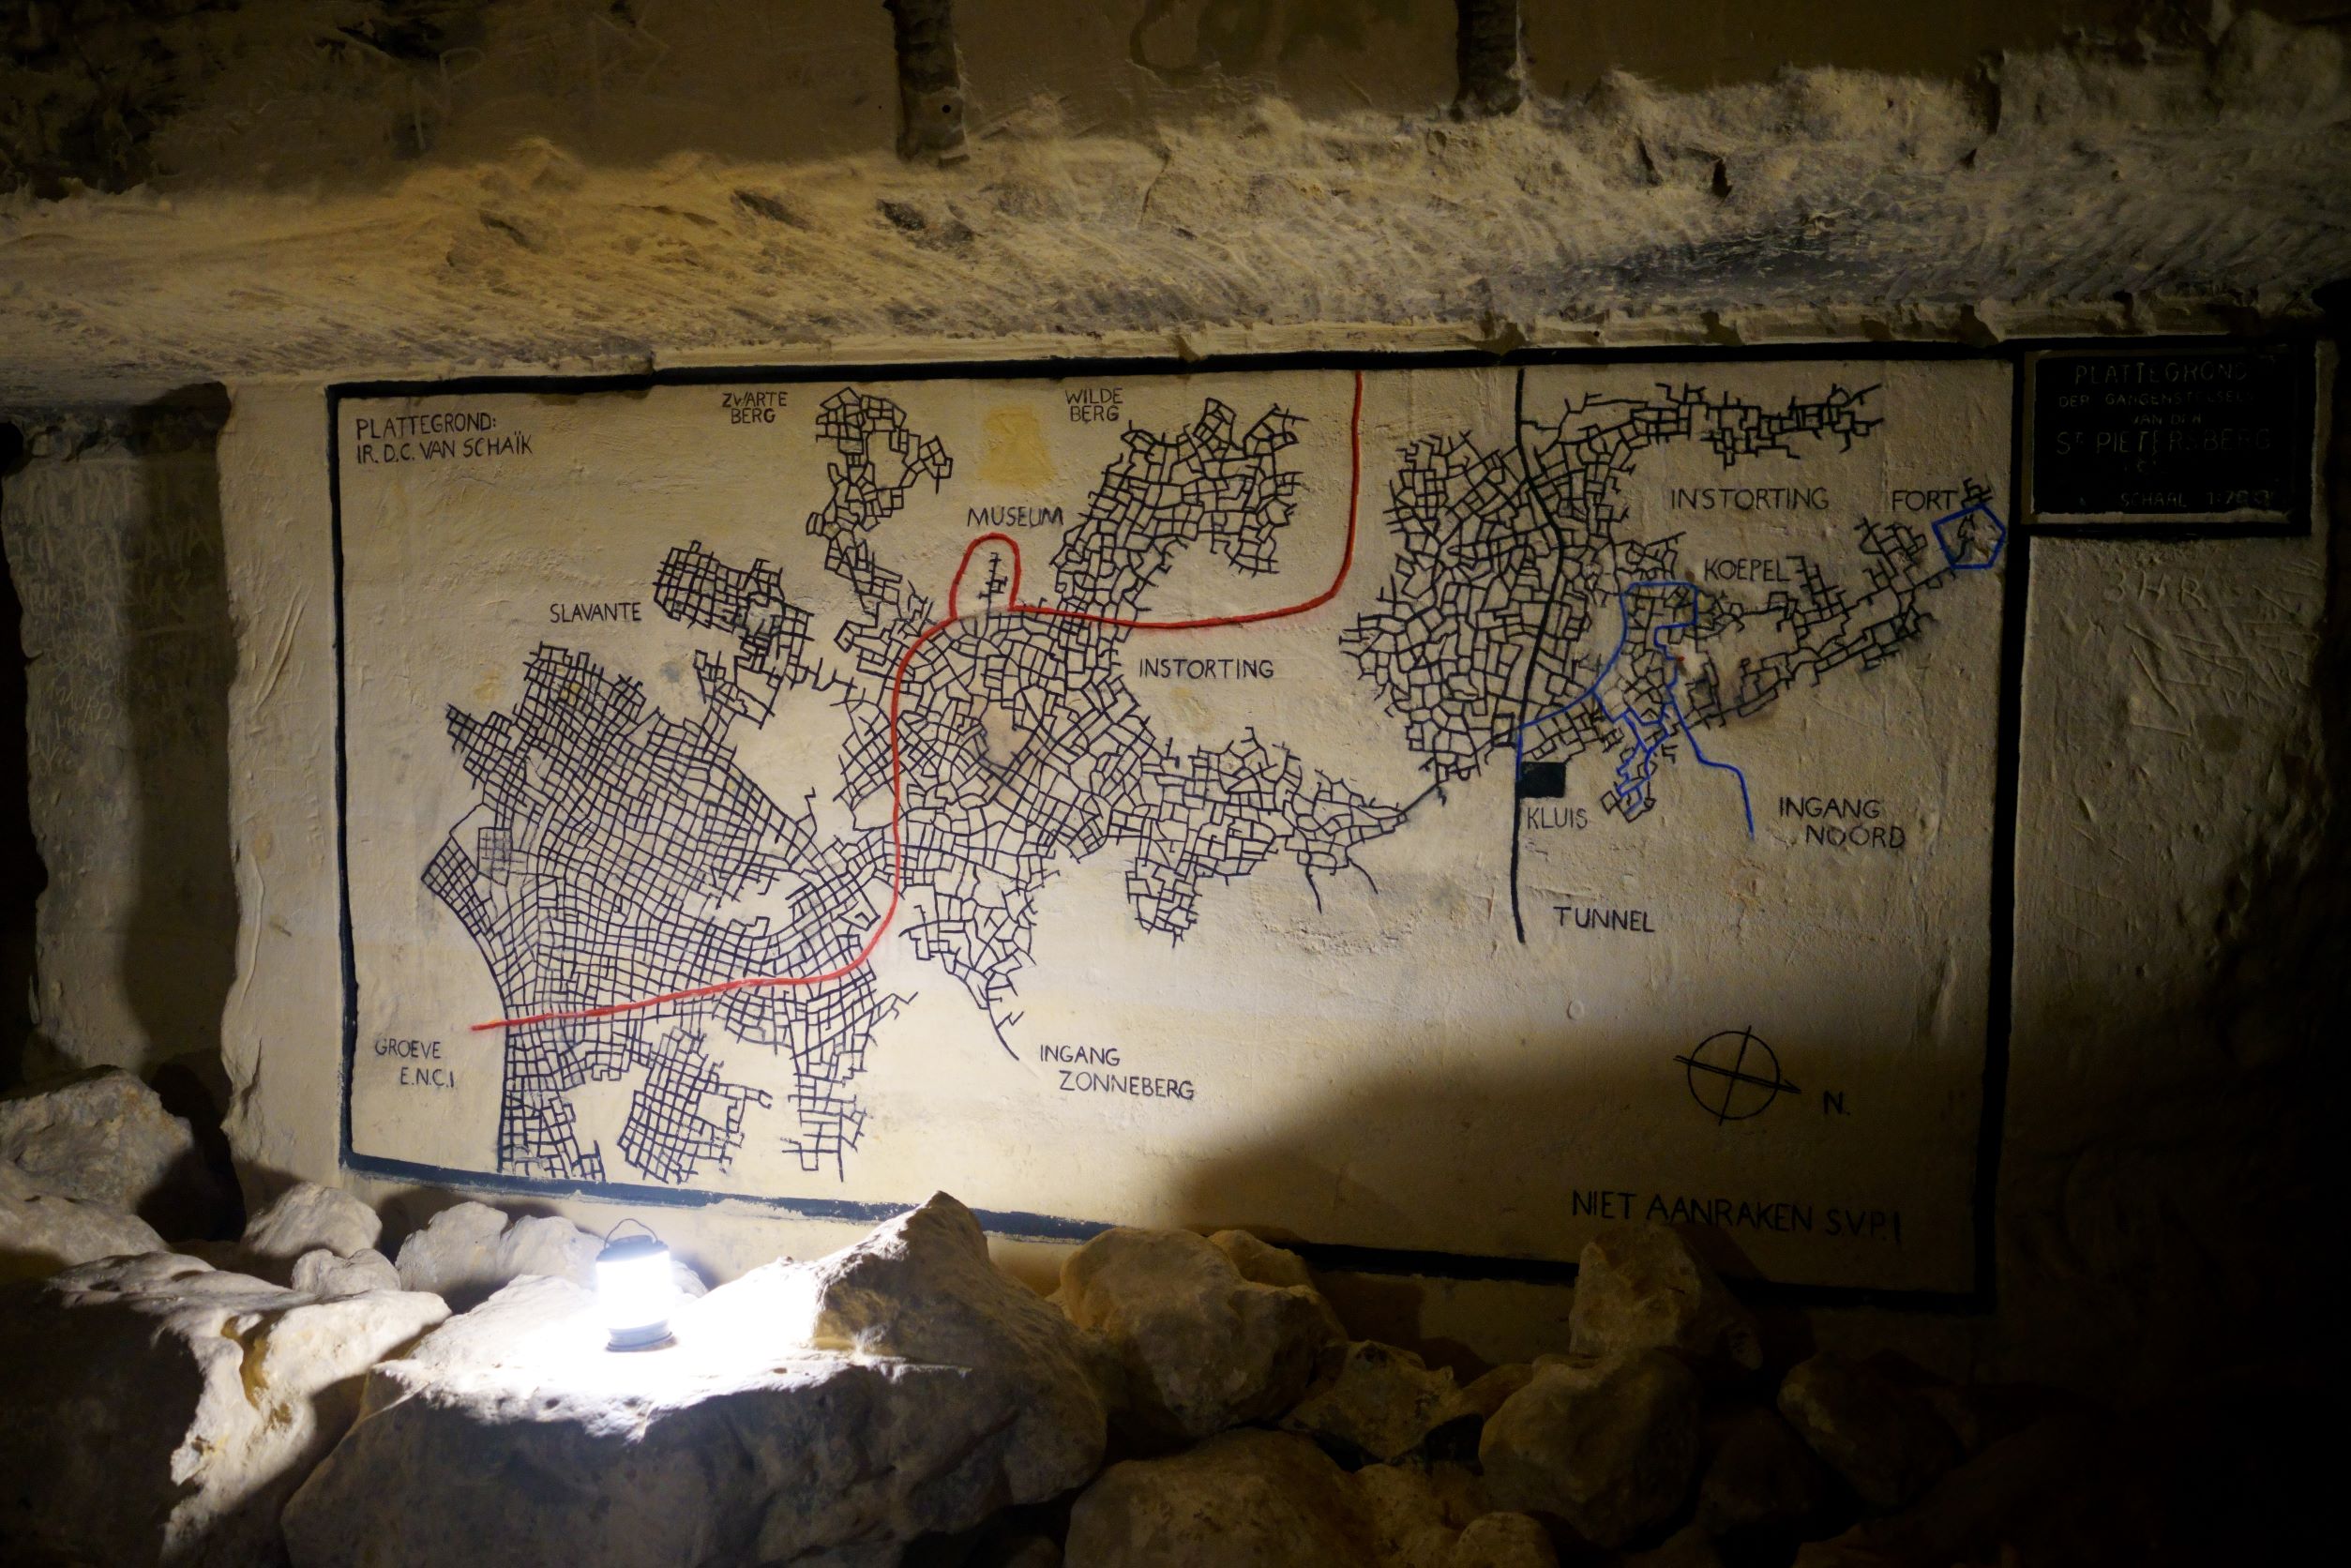 PLATTEGROND:
IR. D.C. VAN SCHAÏK
ZWARTE
BERG
WILDE
BERG
MUSEUM
SLAVANTE
INSTORTING
INSTORTING
FORT
KOEPEL
KLUIS
INGANG
NOORD
TUNNEL
GROEVE
E.N.C.I
INGANG
ZONNEBERG
N.
NIET AANRAKEN S.V.P.!
PLATTEGROND
DER GANGENSTELSELS
VAN DEN
ST PIETERSBERG
SCHAAL
3HR